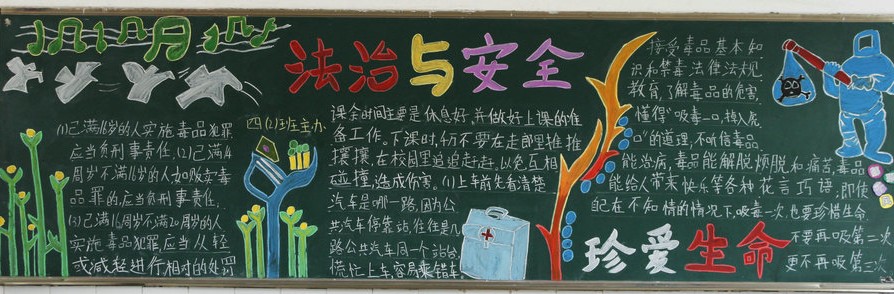 法治与安全
(1)已满16岁的人实施毒品犯罪
应当负刑事责任.(2)已满14
周岁不满16岁的人加贩卖毒
品罪的,应当负刑事责任.
(3)已满16周岁不满20周岁的人
实施毒品犯罪,应当从轻
或减轻进行相对的处罚
四(2)班主办
课余时间主要是休息好,并做好上课的准
备工作。下课时,千万不要在走廊里推推
攘攘,在校园里追追赶赶,以免互相
碰撞,造成伤害。(1)上车前先看清楚
汽车是哪一路,因为公
共汽车停靠站,往往是几
路公共汽车同一个站台,
慌忙上车,容易乘错车.
接受毒品基本知
识和禁毒法律法规
教育,了解毒品的危害,
懂得"吸毒一口,掉入虎
口"的道理,不听信毒品
能治病,毒品能解脱烦脱和痛苦,毒品
能给人带来快乐等各种花言巧语,即使
自己在不知情的情况下,吸毒一次,也要珍惜生命
不要再吸第二次
更不再吸第三次
珍爱生命